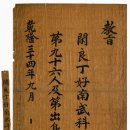 教旨
閑良丁好南武科
第九十六人及第出身
乾隆三十四年九月